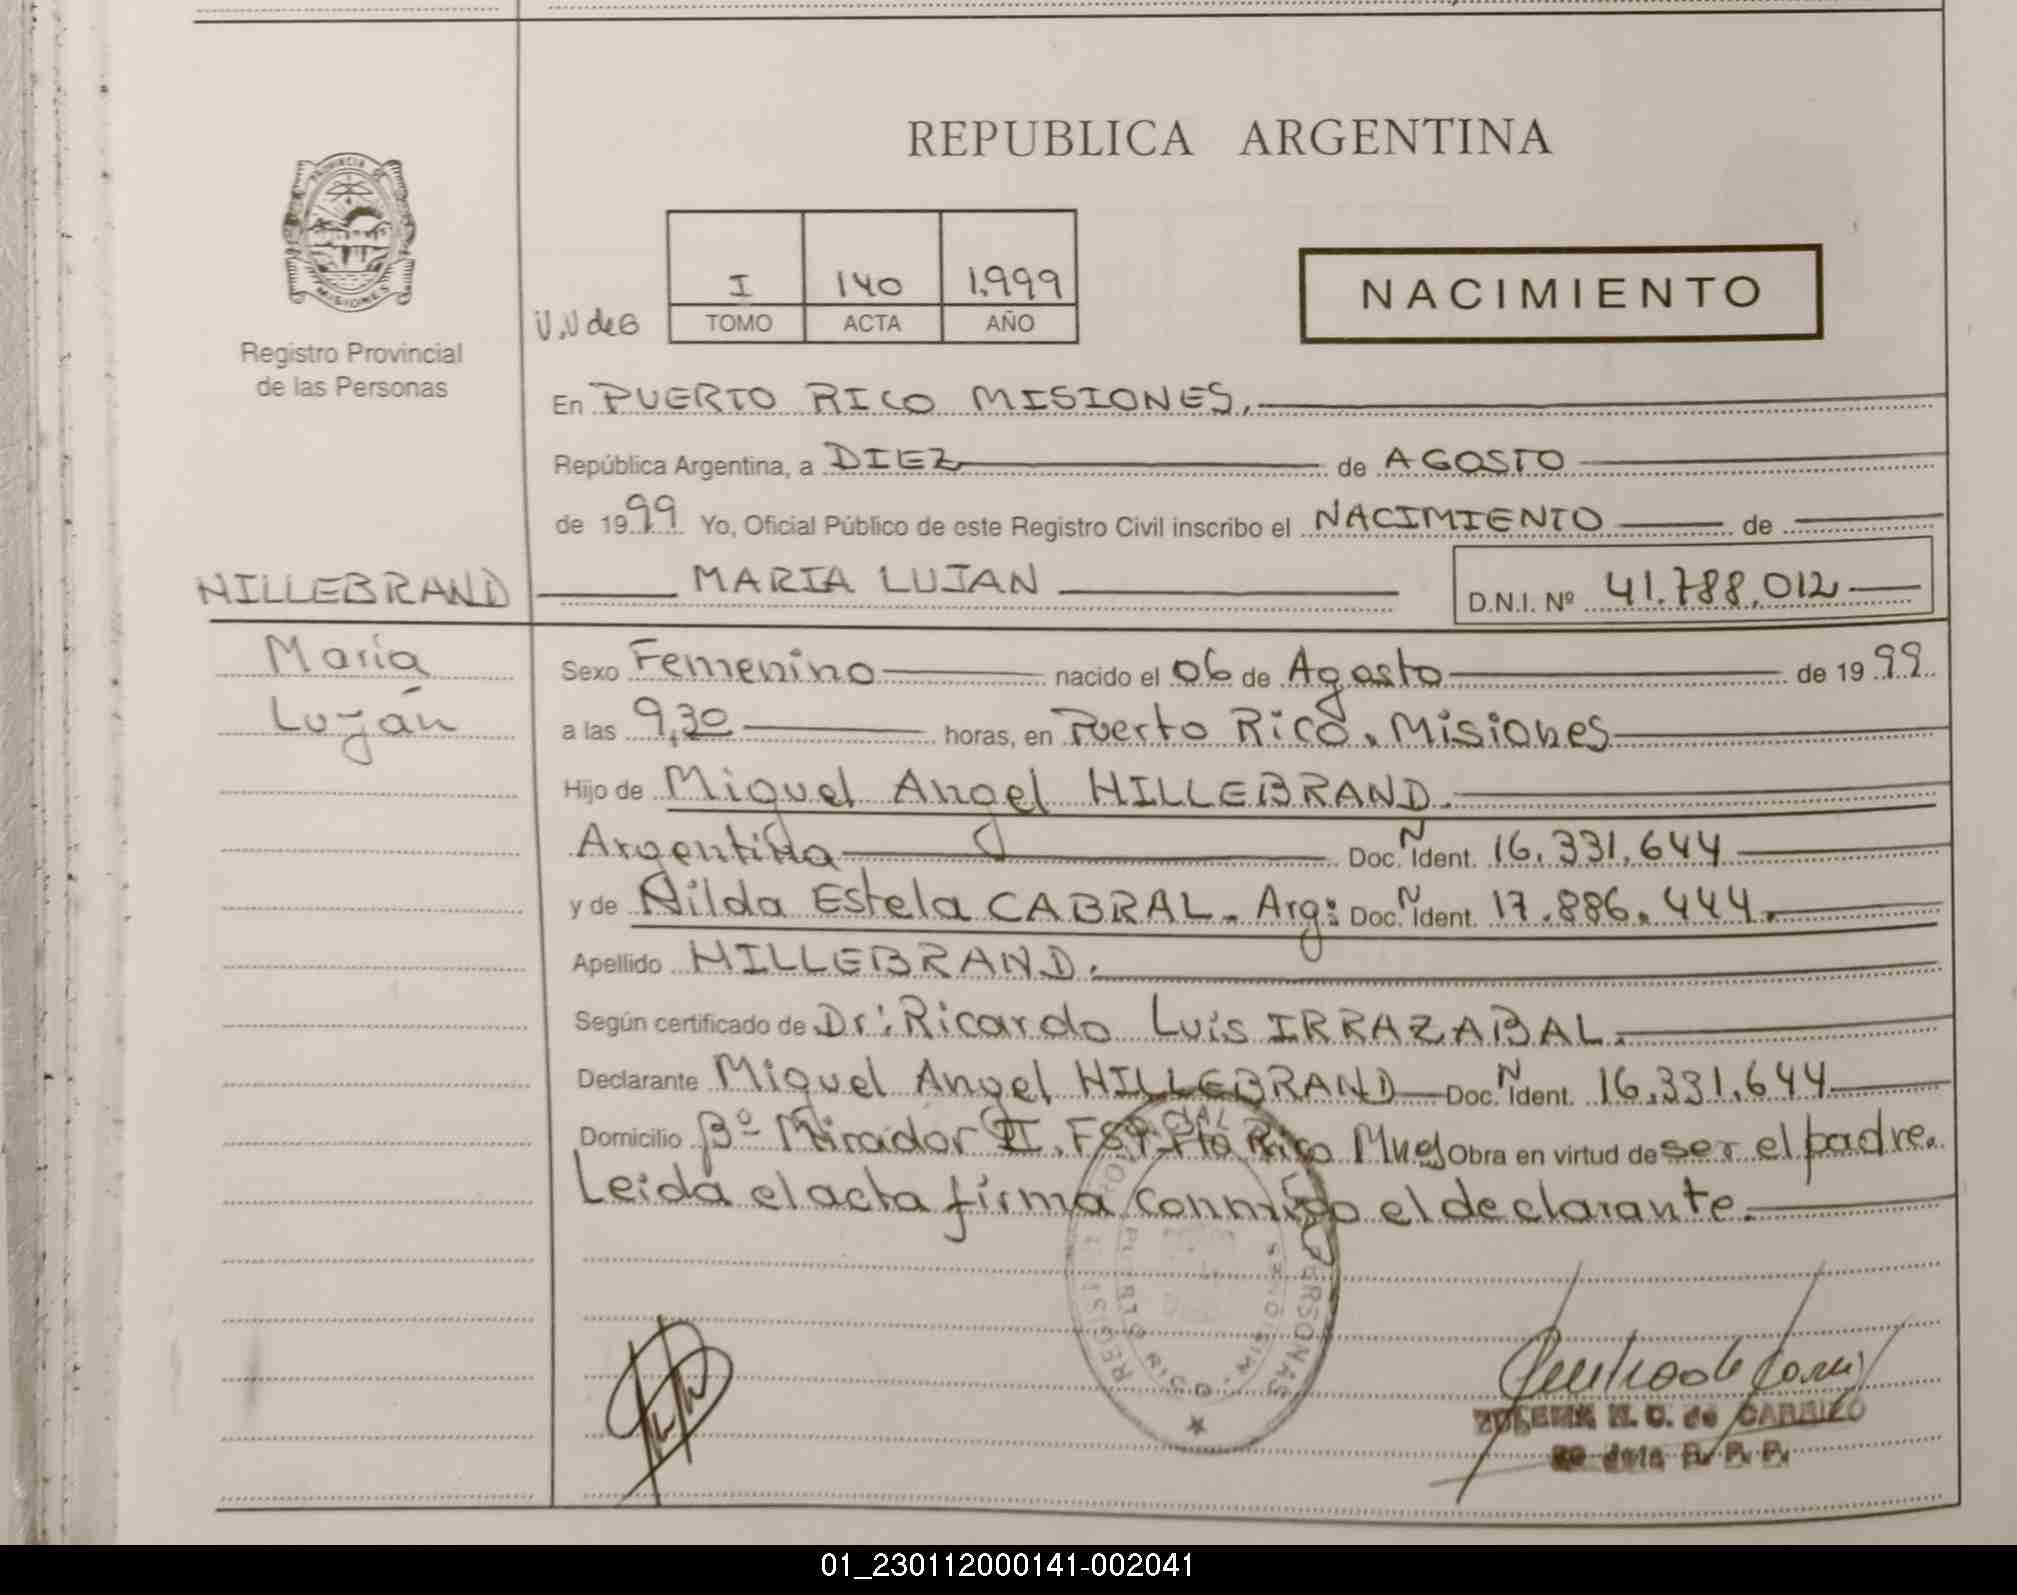 REPUBLICA ARGENTINA
PROVINCIA DE
MISIONES
Registro Provincial
de las Personas
I 140 1.999
TOMO ACTA AÑO
NACIMIENTO
En PUERTO RICO MISIONES,
República Argentina, a DIEZ de AGOSTO
de 1999 Yo, Oficial Público de este Registro Civil inscribo el NACIMIENTO de
HILLEBRAND MARIA LUJAN D.N.I. Nº 41.788.012
María
Luján
Sexo Femenino nacido el 06 de Agosto de 1999
a las 9,30 horas, en Puerto Rico. Misiones
Hijo de Miguel Angel HILLEBRAND.
Argentina Doc. N Ident. 16.331.644
y de Nilda Estela CABRAL. Arg: Doc. N Ident. 17.886.444.
Apellido HILLEBRAND.
Según certificado de Dr: Ricardo Luis IRRAZABAL.
Declarante Miguel Angel HILLEBRAND Doc. N Ident. 16.331.644
Domicilio Bº Mirador II. Pto Rico Mnes Obra en virtud de ser el padre.
Leida el acta firma conmigo el declarante.
PERSONAS
PUERTO RICO - MISIONES
ZULEMA de CARRIZO
01_230112000141-002041